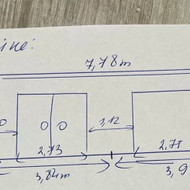 7,78m
0 0 1,12
2,73 2,71
3,84m 3,9